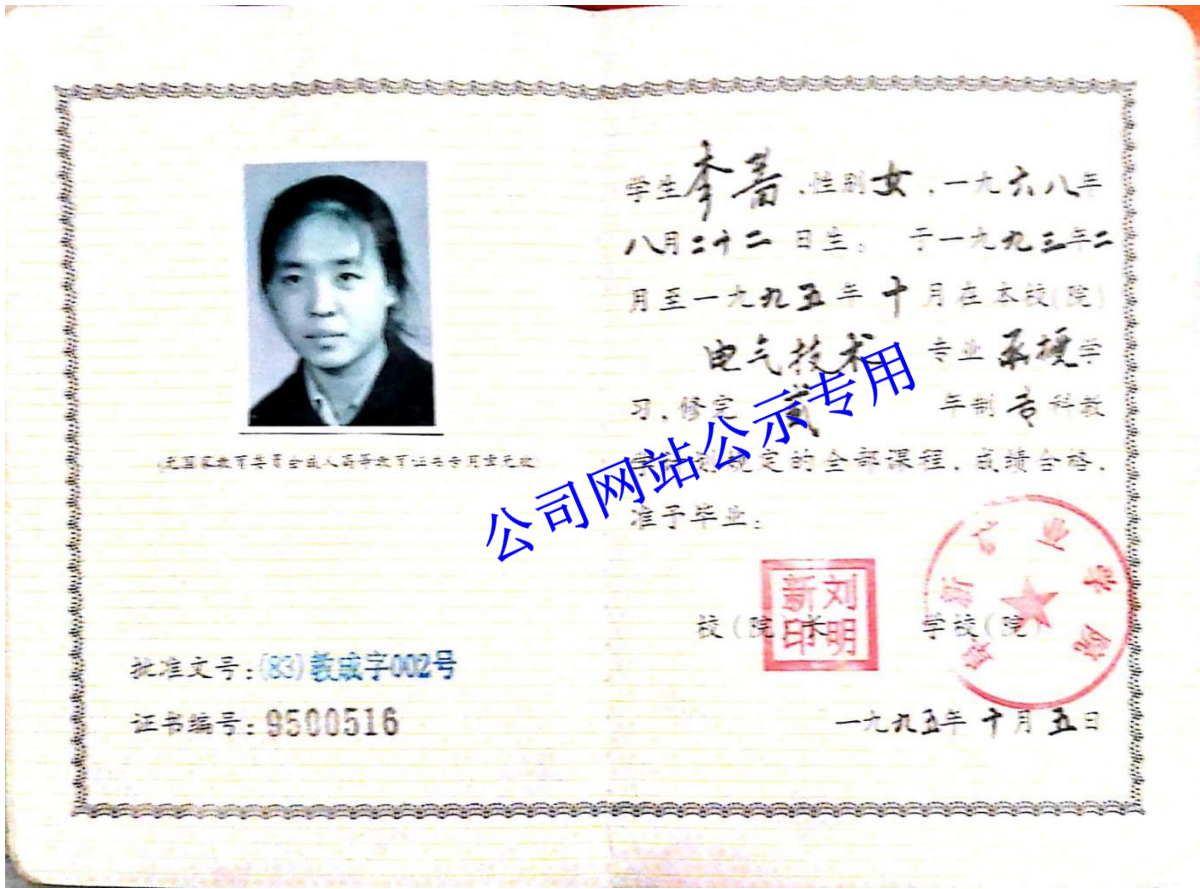 (无国家教育委员会成人高等教育证书专用章无效)
批准文号：(83)教成字002号
证书编号：9500516
学生李蔷，性别女，一九六八年
八月二十二日生，于一九九三年二
月至一九九五年十月在本校(院)
电气技术专业函授学
习，修完贰年制专科教
规定的全部课程，成绩合格，
准予毕业。
校(院)长
刘明新印
学校(院)
矿业学院
一九九五年十月五日
公司网站公示专用